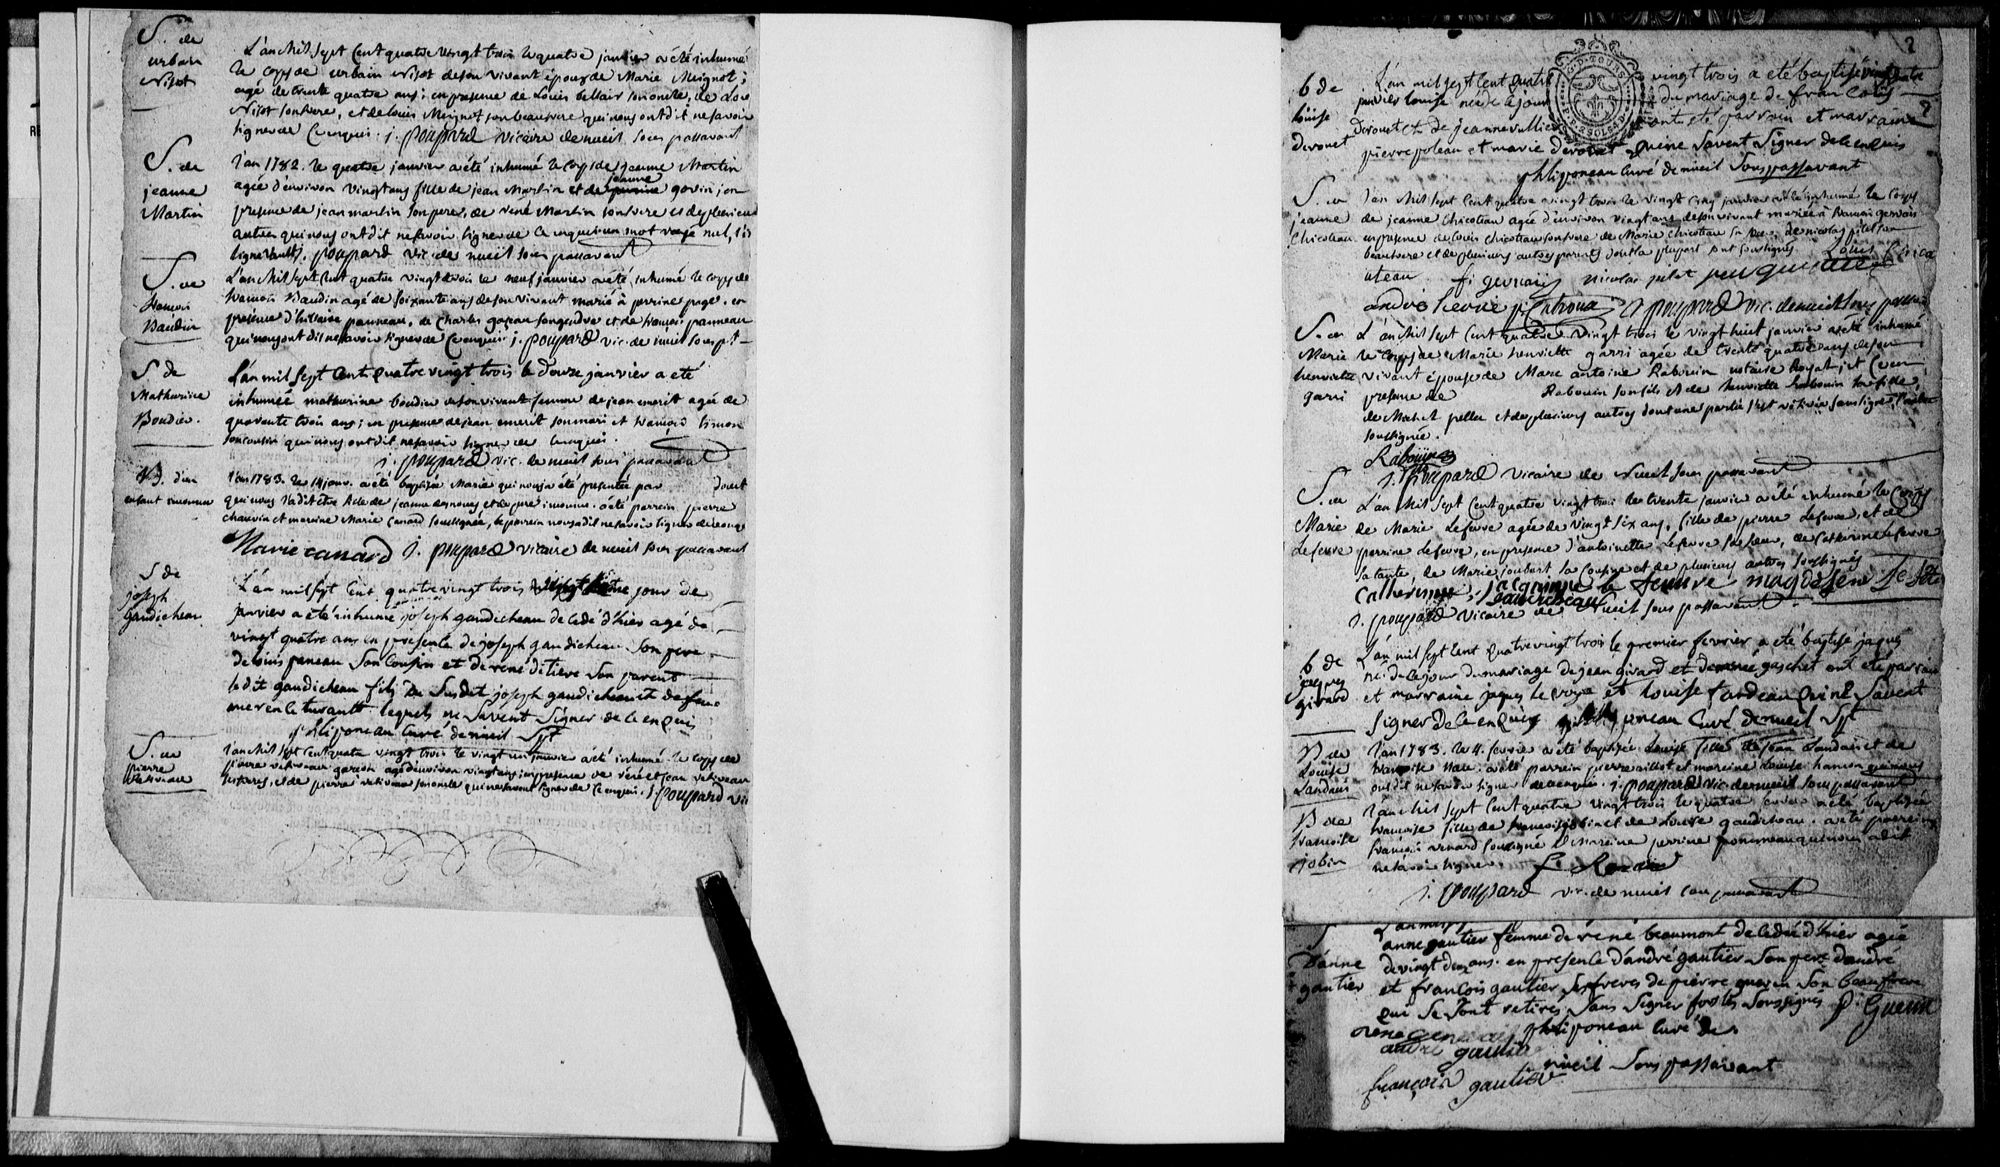 S. de
urbain
Nijot
L'an mil sept cent quatre vingt trois le quatre janvier a été inhumé
le corps de urbain Nijot de son vivant époux de Marie Meignot;
agé de trente quatre ans; en presence de Louis bellair son oncle, de Loui
Nijot son frere, et de Louis Meignot son beaufrere qui nous ont dit ne savoir
signer de ce enquis. j. poupard vicaire de nueil sous passavant
S. de
jeanne
Martin
l'an 1782. le quatre janvier a été inhumé le corps de jeanne Martin
agée d'environ vingt ans fille de jean Martin et de jeanne govin en
presence de jean martin son pere, de rené Martin son frere et de plusieurs
autres qui nous ont dit ne savoir signer de ce enquis un mot rayé nul,
j. poupard vic. de nueil sous passavant
S. de
francois
Baudin
L'an mil sept cent quatre vingt trois le neuf janvier a été inhumé le corps de
francois Baudin agé de soixante ans de son vivant marié à perrine page. en
presence d'hilaire panneau, de Charles gazeau son gendre et de francois panneau
qui nous ont dit ne savoir signer de ce enquis j. poupard vic. de nueil sous pst
S. de
Mathurine
Boudier.
L'an mil sept cent quatre vingt trois le douze janvier a été
inhumée mathurine boudier de son vivant femme de jean emerit agée de
quarante trois ans; en presence de jean emerit son mari et francois simon
son cousin qui nous ont dit ne savoir signer de ce enquis.
j. poupard vic. de nueil sous passavant
B. d'un
enfant inconnu
l'an 1783. le 14 janv. a été baptisée Marie qui nous a été presentée par douet
qui nous l'a dit être fille de jeanne desnoues et de pere inconnu. a été parrein pierre
chauvin et mareine Marie Canard soussignée, le parrein nous a dit ne savoir signer de ce enquis
Marie canard j. poupard vicaire de nueil sous passavant
S de
joseph
gaudicheau
L'an mil sept cent quatre vingt trois jour de
janvier a été inhumé joseph gaudicheau decedé d'hier agé de
vingt quatre ans en presence de joseph gaudicheau son pere
de louis paneau son cousin et de rené ditiere son parent
ledit gaudicheau fils du susdit joseph gaudicheau et de feue
lequels ne savent signer de ce enquis
phliponeau curé de nueil spt
S. de
pierre
Retiveau
l'an mil sept cent quatre vingt trois le vingt un janvier a été inhumé le corps de
pierre retiveau garçon agé d'environ vingt ans; en presence de réné et jean retiveau
ses freres, et de pierre retiveau son oncle qui ne savent signer de ce enquis. j. poupard vic
2
b de
louise
derouet
L'an mil sept cent quatre vingt trois a été baptisé vingt quatre
janvier louise née de ce jour du mariage de francois
derouet et de jeanne vallier ont été parrain et marraine
pierre poteau et marie derouet qui ne savent signer de ce enquis
phliponeau curé de nueil sous passavant
G.D. TOURS
S. de
jeanne
Chicoteau
l'an mil sept cent quatre vingt trois le vingt cinq janvier a été inhumé le corps
de jeanne Chicoteau agée d'environ vingt ans de son vivant mariée à francois gervais
en presence de Louis Chicoteau son frere de Marie Chicoteau sa soeur de nicolas pelet son
beaufrere et de plusieurs autres parents dont la plupart sont soussignés Louis Chico
uteau f. gervais nicolas pelet
j. poupard vic. de nueil sous passa
S. de
Marie
henriette
garri
L'an mil sept cent quatre vingt trois le vingt huit janvier a été inhumé
le corps de Marie henriette garri agée de trente quatre ans de son
vivant épouse de Marc antoine Rabouin notaire Royal; et
presence de Rabouin son fils et de henriette Rabouin sa fille;
de Michel pellu et de plusieurs autres dont une partie s'est retirée sans signer, l'autre
soussignée.
Rabouin
j. poupard vicaire de Nueil sous passavant
S. de
Marie
Lefevre
L'an mil sept cent quatre vingt trois le trente janvier a été inhumé le corps
de Marie Lefevre agée de vingt six ans, fille de pierre Lefevre, et de
perrine Lefevre, en presence d'antoinette Lefevre sa soeur, de Catherine Lefevre
sa tante, de Marie joubert sa cousine et de plusieurs autres soussignés
j. poupard vicaire de Nueil sous passavant
b de
jaques
girard
L'an mil sept cent quatre vingt trois le premier fevrier a été baptisé jaques
né de ce jour du mariage de jean girard et de renée gaschet ont été parrain
et marraine jaques le roye et louise fardeau qui ne savent
signer de ce enquis phliponeau curé de nueil spt
B de
Louise
Landais
l'an 1783. le 4. fevrier a été baptisée Louise fille de jean Landais et de
francoise Nau. a été parrein pierre aillot et mareine Louise hamon qui nous
ont dit ne savoir signer de ce enquis. j. poupard vic. de nueil sous passavant
B de
francoise
jobin
l'an mil sept cent quatre vingt trois le quatre fevrier a été baptisée
francoise fille de francois jobin et de Louise gaudicheau. a été parrein
francois renard soussigné et mareine perrine ponneau qui nous a dit
ne savoir signer. f. Renard
j. poupard vic. de nueil sous passavant
S
D'anne
gautier
anne gautier femme de réné beaumont decedée d'hier agée
de vingt deux ans. en presence d'andré gautier son pere d'andre
et francois gautier ses freres de pierre guerin son beaufrere
qui se sont retirés sans signer fors les soussignés P. Guerin
phliponeau curé de
andre gautier
nueil sous passavant
françois gautier